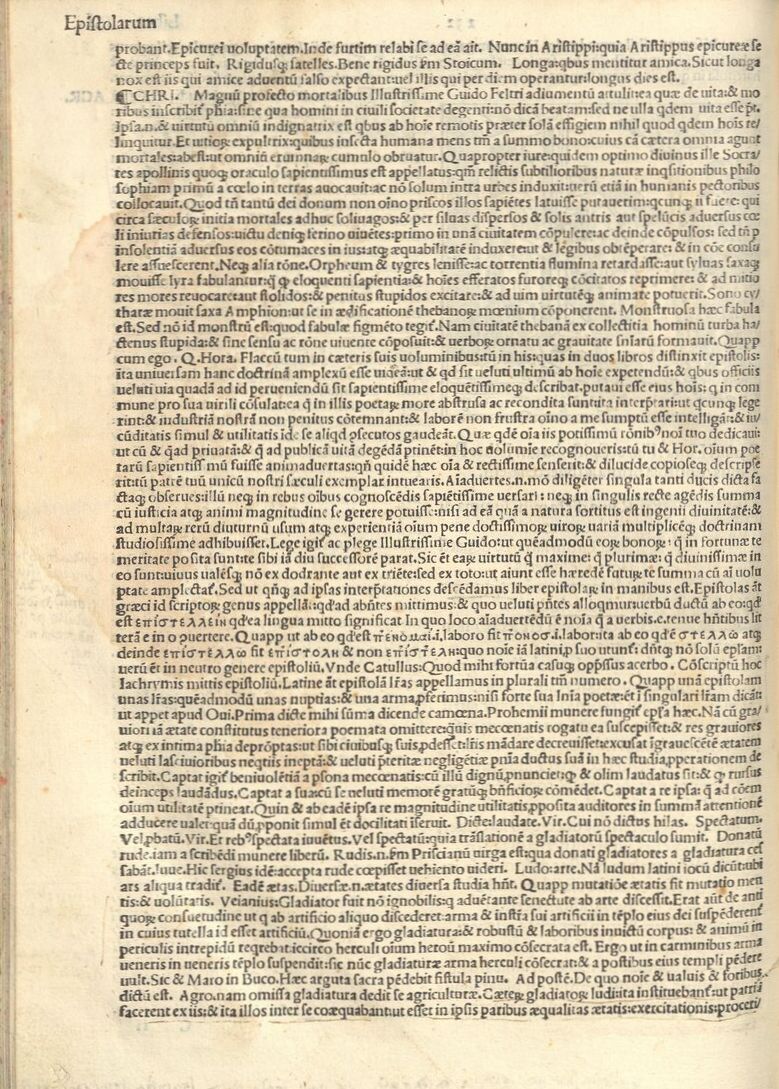 Epistolarum
probant. Epicurei uoluptatem. Inde furtim relabi se ad eā ait. Nunc in Aristippi: quia Aristippus epicureæ se
cte princeps fuit. Rigidusq; satelles. Bene rigidus ſm Stoicum. Longa: qbus mentitur amica. Sicut longa
nox est iis qui amice aduentū falso expectant: uel illis qui per diem operantur: longus dies est.
CHRI. Magnū profecto mortalibus Illustrissime Guido Feltri adiumentū attulit: ea quæ de uita: & mo
ribus inscribit phia: sine qua homini in ciuili societate degenti: nō dicā beatam: sed ne ulla qdem uita esse pt.
Ipsa.n.& uirtutū omniū indignatrix est qbus ab hoīe remotis præter solā effigiem nihil quod qdem hoīs re/
linquitur. Et uitioꝝ expultrix: quibus infecta humana mens tm̄ a summo bono: cuius cā cætera omnia agunt
mortales: abest: ut omniū erumnaꝝ cumulo obruatur. Quapropter iure: qui dem optimo diuinus ille Socra/
tes apollinis quoq; oraculo sapientissimus est appellatus: qm̄ relictis subtilioribus naturæ inqsitionibus philo
sophiam primū a cœlo in terras auocauit: ac nō solum intra urbes induxit: uerū etiā in humanis pectoribus
collocauit. Quod tn̄ tantū dei donum non oīno priscos illos sapiētes latuisse putauerim: qcunq; ii fuere: qui
circa sæculoꝝ initia mortales adhuc soliuagos: & per siluas dispersos & solis antris aut spelūcis aduersus cœ
li iniurias defensos: uictu deniq; ferino uiuētes: primo in unā ciuitatem cōpulere: ac deinde cōpulsos: sed tn̄ p
insolentiā aduersus eos cōtumaces in ius: atq; æquabilitatē induxere: ut & legibus obtēperare: & in cōe consu
lere assuescerent. Neq; alia rōne. Orpheum & tygres lenisse: ac torrentia flumina retardasse: aut syluas saxaq;
mouisse lyra fabulantur: q̄ ꝙ eloquenti sapientia: & hoīes efferatos furoreq; cōcitatos reprimere: & ad mitio
res mores reuocare: aut stolidos: & penitus stupidos excitare: & ad uim uirtutēq; animare potuerit. Sono cy/
tharæ mouit saxa Amphion: ut se in ædificatiōe thebanoꝝ mœnium cōponerent. Monstruosa hæc fabula
est. Sed nō id monstrū est: quod fabulæ figmēto tegit̄. Nam ciuitatē thebanā ex collectitia hominū turba ha/
ctenus stupida: & sine sensu ac rōne uiuente cōposuit: & uerboꝝ ornatu ac grauitate sniarū formauit. Quapp
cum ego. Q. Hora. Flaccū tum in cæteris suis uoluminibus: tū in his: quas in duos libros distinxit epistolis:
ita uniuersam hanc doctrinā amplexū esse uideā: ut & qd sit ueluti ultimū ab hoīe expetendū: & qbus officiis
ueluti uia quadā ad id perueniendū sit sapientissime eloquētissimeq; describat. putaui esse eius hoīs: q in com
mune pro sua uirili cōsulat: ea q̄ in illis poetaꝝ more abstrusa ac recondita sunt: ita interptari: ut qcunq; lege
rint: & industriā nostrā non penitus cōtemnant: & laborē non frustra oīno a me sumptū esse intelligāt: & iu/
cūditatis simul & utilitatis ide se aliqd ꝓsecutos gaudeāt. Quæ qdē oīa iis potissimū rōnibꝰ noī tuo dedicaui:
ut cū & q̄ad priuatā: & q̄ ad publicā uitā degēdā ptinēt: in hoc uolumīe recognoueris: tū tu & Hor. oīum poe
tarū sapientissimū fuisse animaduertas: qn̄ quidē hæc oīa & rectissime senserit: & dilucide copioseq; descripse
rit: tū patrē tuū unicū nostri sæculi exemplar intuearis. Aīaduertes.n.mō diligēter singula tanti ducis dicta fa
ctaq; obserues: illū neq; in rebus oībus cognoscēdis sapiētissime uersari: neq; in singulis recte agēdis summa
cū iusticia atq; animi magnitudine se gerere potuisse: nisi ad eā quā a natura sortitus est ingenii diuinitatē: &
ad multaꝝ rerū diuturnū usum atq; experientiā oīum pene doctissimoꝝ uiroꝝ uariā multiplicēq; doctrinam
studiosissime adhibuisset. Lege igit̄ ac plege Illustrissime Guido: ut quēadmodū eoꝝ bonoꝝ: q̄ in fortunæ te
meritate posita sunt: te sibi iā diu successorē parat. Sic ēt eaꝝ uirtutū q̄ maxime: q̄ plurimæ: q̄ diuinissimæ in
eo sunt: uiuus ualēsq; nō ex dodrante aut ex triēte: sed ex toto: ut aiunt esse hæredē futuꝝ te summa cū aī uolu
ptate amplectat̄. Sed ut qn̄q; ad ipsas interptationes descēdamus liber epistolaꝝ in manibus est. Epistolas āt
græci id scriptoꝝ genus appellāt: qd ad abntes mittimus: & quo ueluti pntes alloqmur: uerbū ductū ab eo: qd
est ἐπιστέλλειν qd ea lingua mitto significat. In quo loco aīaduertēdū ē noīa q̄ a uerbis.e.tenue hn̄tibus lit
terā e in o puertere. Quapp ut ab eo qd est πένομαι.i.laboro fit πόνοσ.i.labor: ita ab eo qd ē στέλλω atq;
deinde ἐπιστέλλω fit ἐπιστολη & non ἐπιστελη: quo noīe iā latini, p suo utunt̄: dn̄tq; nō solū epl̄am:
uerū ēt in neutro genere epistoliū. Vnde Catullus: Quod mihi fortūa casuq; opp̄ssus acerbo. Cōscriptū hoc
lachrymis mittis epistoliū. Latine āt epistolā lr̄as appellamus in plurali tm̄ numero. Quapp unā epistolam
unas lr̄as: quēadmodū unas nuptias: & una arma, pferimus: nisi forte sua lnīa poetæ: ēt ī singulari lr̄am dicāt:
ut appet apud Oui. Prima dicte mihi sūma dicende camœna. Prohemii munere fungit̄ epl̄a hæc. Nā cū gra/
uiori iā ætate constitutus teneriora poemata omittere: quis mecœnatis rogatu ea suscepisset: & res grauiores
atq; ex intima phia deprōptas: ut sibi ciuibusq; suis, pdesset: lr̄is mādare decreuisset: excusat īgrauescētē ætatem
ueluti lasciuioribus neqtiis ineptā: & ueluti pteritæ negligētiæ pnīa ductus suā in hæc studia, pperationem de
scribit. Captat igit̄ beniuolētiā a psona mecœnatis: cū illū dignū, pnunciet: q̄ & olim laudatus sit: & q̄ rursus
deinceps laudādus. Captat a sua: cū se ueluti memorē gratūq; bn̄ficioꝝ cōmēdet. Captat a re ipsa: q̄ ad cōem
oīum utilitatē ptineat. Quin & ab eadē ipsa re magnitudine utilitatis, pposita auditores in summā attentionē
adducere ualet: quā dū, pponit simul ēt docilitati īseruit. Dicte: laudate. Vir. Cui nō dictus hilas. Spectatum.
Vel, pbatū. Vir. Et rebꝰ spectata iuuētus. Vel spectatū: quia trāslatiōe a gladiatoꝝ spectaculo sumit. Donatū
rude. iam a scribēdi munere liberū. Rudis.n.ſm Prisciānū uirga est: qua donati gladiatores a gladiatura ces
sabāt. Iuue. Hic sergius idē: accepta rude cœpisset uehiento uideri. Ludo: arte. Nā ludum latini iocū dicūt: ubi
ars aliqua tradit̄. Eadē ætas. Diuersæ.n.ætates diuersa studia hn̄t. Quapp mutatiōe ætatis fit mutatio men
tis: & uolūtatis. Veianius: Gladiator fuit nō ignobilis: q aduētante senectute ab arte discessit. Erat aūt de anti
quoꝝ consuetudine ut q ab artificio aliquo discederet: arma & instra sui artificii in tēplo eius dei suspēderent
in cuius tutella id esset artificiū. Quoniā ergo gladiatura: & robustū & laboribus inuictū corpus: & animū in
periculis intrepidū reqrebat: iccirco herculi oīum heroū maximo cōsecrata est. Ergo ut in carminibus arma
ueneris in ueneris tēplo suspendit: sic nūc gladiaturæ arma herculi cōsecrat: & a postibus eius templi pēdere
uult. Sic & Maro in Buco. Hæc arguta sacra pēdebit fistula pinu. Ad postē. De quo noīe & ualuis & foribus
dictū est. Agro. nam omissa gladiatura dedit se agriculturæ. Cæteꝝ gladiatoꝝ ludi ita instituebant̄: ut patriā
facerent ex iis: & ita illos inter se coæquabant: ut esset in ipsis paribus æqualitas ætatis: exercitationis: proceri/